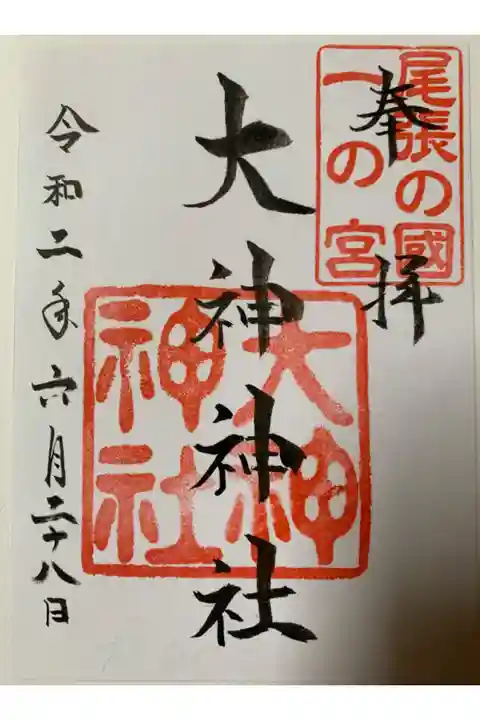 尾張の國
一の宮
奉拝
大神神社
大神
神社
令和二年六月二十八日